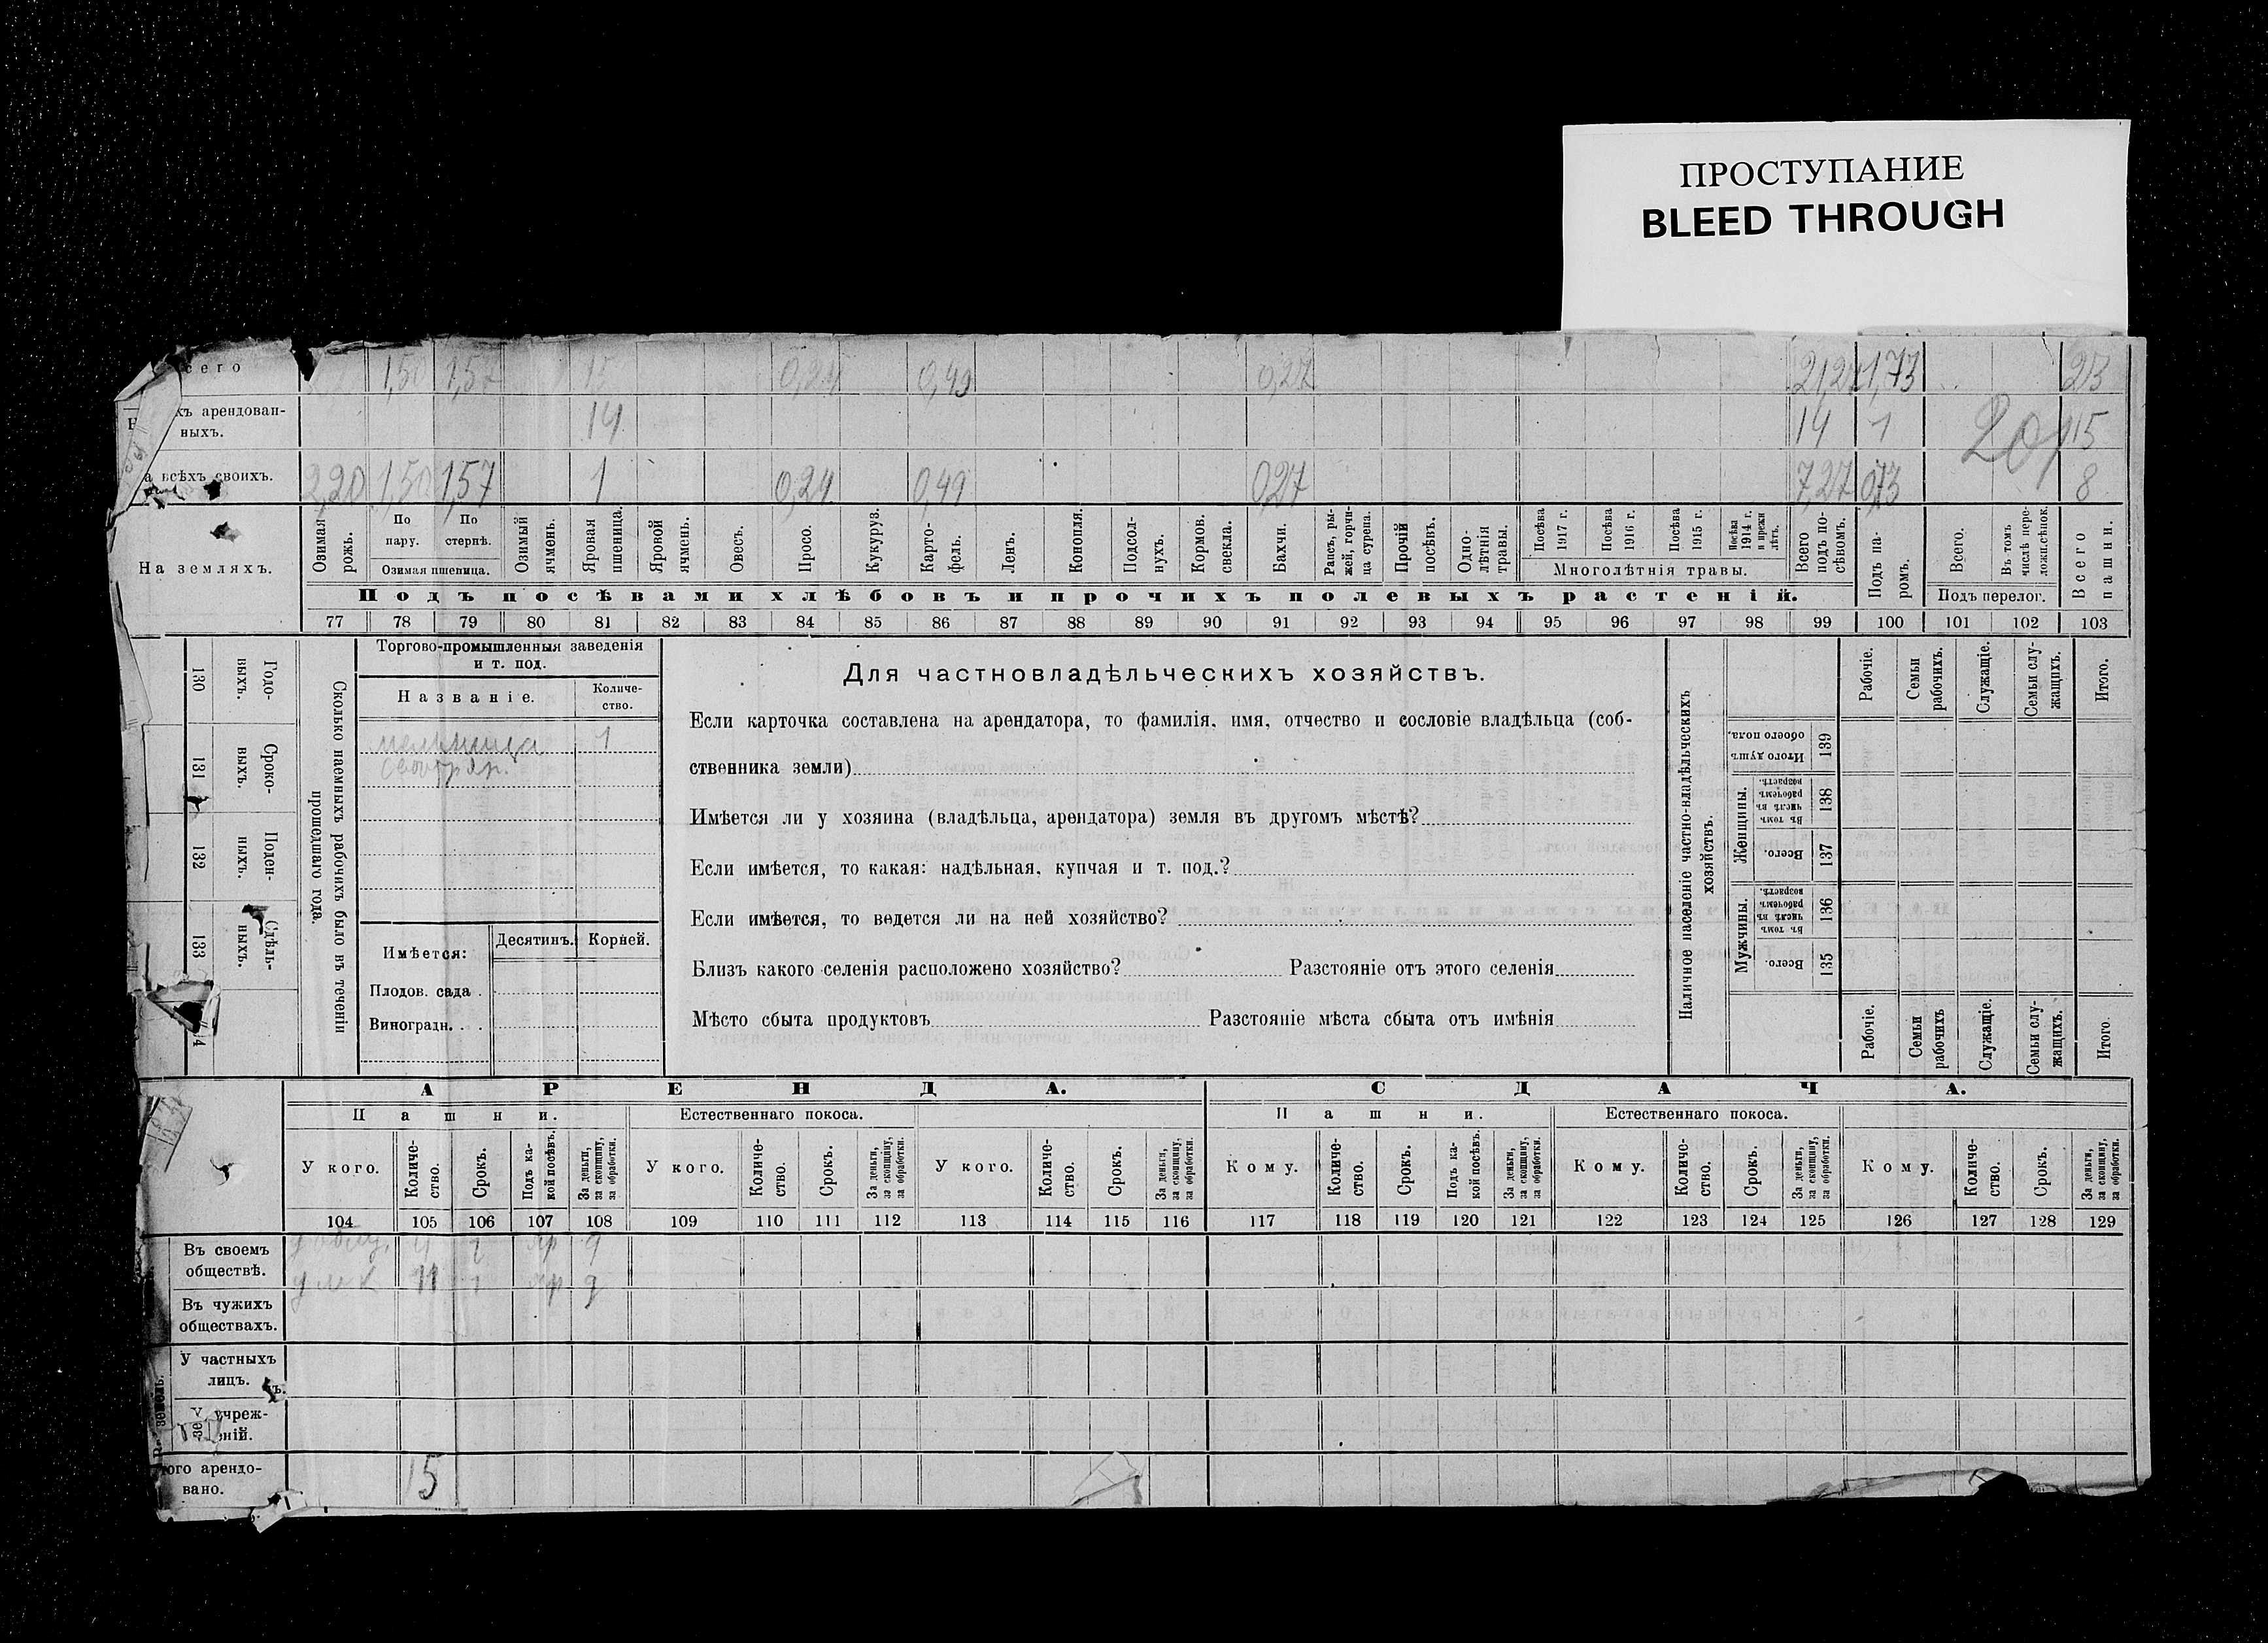 ПРОСТУПАНИЕ
BLEED THROUGH
сего 1,50 1,57 15 0,24 0,49 0,27 21,27 1,73 23
хъ арендован-
ныхъ. 14 14 1 15
а всѣхъ своихъ. 2,20 1,50 1,57 1 0,24 0,49 0,27 7,27 0,73 8
На земляхъ.
Озимая рожь.
По пару.
По стернѣ.
Озимая пшеница.
Озимый ячмень.
Яровая пшеница.
Яровой ячмень.
Овесъ.
Просо.
Кукуруз.
Карто-
фель.
Ленъ.
Конопля.
Подсол-
нухъ.
Кормов. свекла.
Бахчи.
Рапсъ, ры-
жей, горчи-
ца сурепа.
Прочій посѣвъ.
Одно-
лѣтнія травы.
Посѣва 1917 г.
Посѣва 1916 г.
Посѣва 1915 г.
Посѣва 1914 г. и прежн лѣтъ.
Многолѣтнія травы.
Всего подъ по-
сѣвомъ.
Подъ па-
ромъ.
Всего.
Въ томъ числѣ пере-
ложн.сѣнок.
Подъ перелог.
Всего пашни.
Подъ посѣвами хлѣбовъ и прочихъ полевыхъ растеній.
77 78 79 80 81 82 83 84 85 86 87 88 89 90 91 92 93 94 95 96 97 98 99 100 101 102 103
130 Годо-
выхъ.
131 Сроко-
выхъ.
132 Поден-
ныхъ.
133 Сдѣль-
ныхъ.
Сколько наемныхъ рабочихъ было въ теченіи
прошедшаго года.
Торгово-промышленныя заведенія
и т. под.
Названіе. Количе-
ство.
мельница 1
Имѣется: Десятинъ. Корней.
Плодов. сада .
Виноградн. . .
Для частновладѣльческихъ хозяйствъ.
Если карточка составлена на арендатора, то фамилія, имя, отчество и сословіе владѣльца (соб-
ственника земли)
Имѣется ли у хозяина (владѣльца, арендатора) земля въ другомъ мѣстѣ?
Если имѣется, то какая: надѣльная, купчая и т. под.?
Если имѣется, то ведется ли на ней хозяйство?
Близъ какого селенія расположено хозяйство? Разстояніе отъ этого селенія
Мѣсто сбыта продуктовъ Разстояніе мѣста сбыта отъ имѣнія
Наличное населеніе частно-владѣльческихъ
хозяйствъ.
Рабочіе.
Семьи рабочихъ.
Служащіе.
Семьи слу-
жащихъ.
Итого.
Итого душъ обоего пола. 139
Женщины.
въ томъ числѣ въ рабочемъ возрастѣ. 138
Всего. 137
Мужчины.
въ томъ числѣ въ рабочемъ возрастѣ. 136
Всего. 135
Рабочіе.
Семьи рабочихъ
Служащіе.
Семьи слу-
жащихъ.
Итого.
АРЕНДА. СДАЧА.
Пашни. Естественнаго покоса. Пашни. Естественнаго покоса.
У кого.
Количе-
ство.
Срокъ.
Подъ ка-
кой посѣвъ.
За деньги, за скопщину, за обработки.
У кого.
Количе-
ство.
Срокъ.
За деньги, за скопщину, за обработки.
У кого.
Количе-
ство.
Срокъ.
За деньги, за скопщину, за обработки.
Кому.
Количе-
ство.
Срокъ.
Подъ ка-
кой посѣвъ.
За деньги, за скопщину, за обработки.
Кому.
Количе-
ство.
Срокъ.
За деньги, за скопщину, за обработки.
Кому.
Количе-
ство.
Срокъ.
За деньги, за скопщину, за обработки.
104 105 106 107 108 109 110 111 112 113 114 115 116 117 118 119 120 121 122 123 124 125 126 127 128 129
Въ своемъ
обществѣ. 4
11
Въ чужихъ
обществахъ.
У частныхъ
лицъ.
У учреж-
еній.
ого арендо-
вано. 15